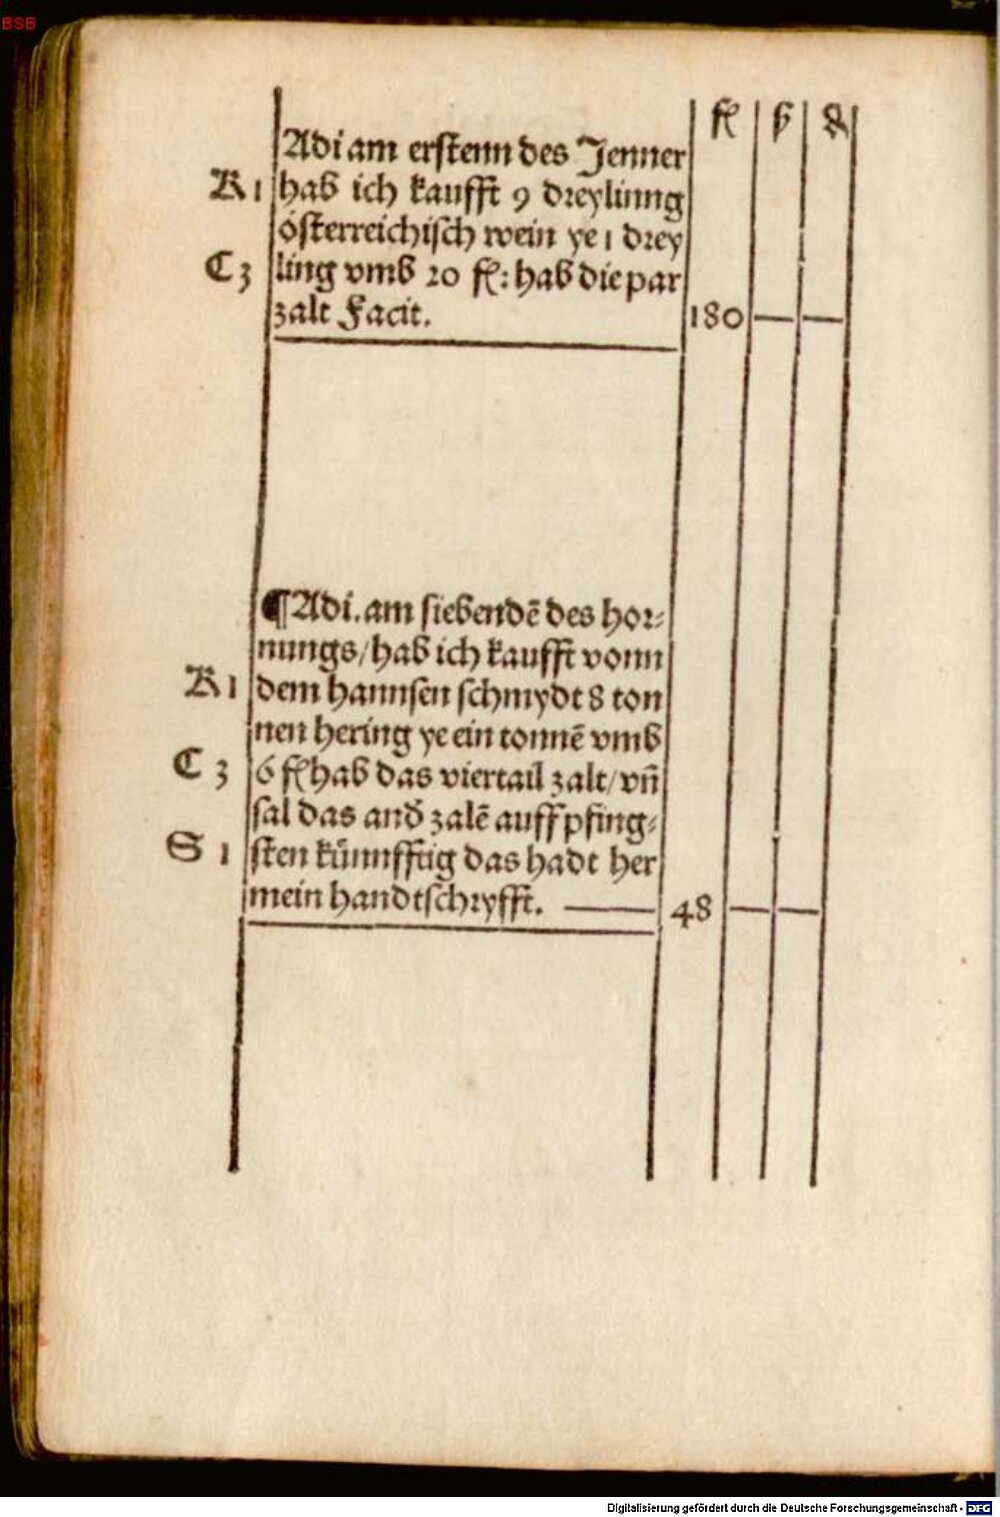 BSB
fl ß ₰
Adi am erstenn des Jenner
K 1 hab ich kaufft 9 dreylinng
österreichisch wein ye 1 drey
C 3 ling vmb 20 fl: hab die par
zalt Facit. 180 — —
¶ Adi. am siebendē des hor⸗
nungs/hab ich kaufft vonn
K 1 dem hannsen schmydt 8 ton
nen hering ye ein tonnē vmb
C 3 6 fl hab das viertail zalt/vn̄
sal das and̕ zalē auff pfing⸗
S 1 sten kűnnfftig das hadt her
mein handtschryfft. — 48 — —
Digitalisierung gefördert durch die Deutsche Forschungsgemeinschaft - DFG